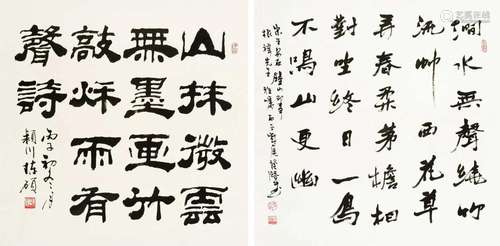 山抹微雲
無墨画竹
敲秋雨有
聲詩
丙子初冬之月
澗水無聲繞竹
流竹西花草
弄春柔茅檐相
對坐終日一鳥
不鳴山更幽
宋王安石鐘山即事